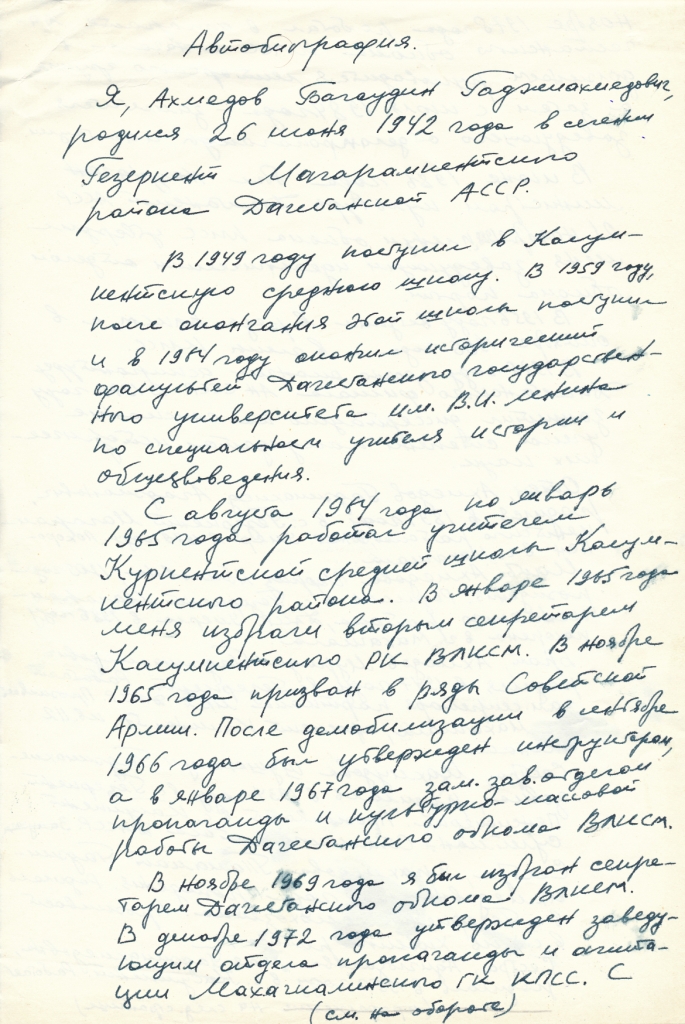 Автобиография.
Я, Ахмедов Багаудин Гаджиахмедович,
родился 26 июня 1942 года в селении
Гезеркент Магарамкентского
района Дагестанской АССР.
В 1949 году поступил в Касум-
кентскую среднюю школу. В 1959 году,
после окончания этой школы поступил
и в 1964 году окончил исторический
факультет Дагестанского государствен-
ного университета им. В.И. Ленина
по специальности учителя истории и
обществоведения.
С августа 1964 года по январь
1965 года работал учителем
Куркентской средней школы Касум-
кентского района. В январе 1965 года
меня избрали вторым секретарем
Касумкентского РК ВЛКСМ. В ноябре
1965 года призван в ряды Советской
Армии. После демобилизации в
1966 года был утвержден инструктором,
а в январе 1967 года зам. зав. отделом
пропаганды и культурно-массовой
работы Дагестанского обкома ВЛКСМ.
В ноябре 1969 года я был избран секре-
тарем Дагестанского обкома ВЛКСМ.
В декабре 1972 года утвержден заведу-
ющим отдела пропаганды и агита-
ции Махачкалинского ГК КПСС. С
(см. на обороте)